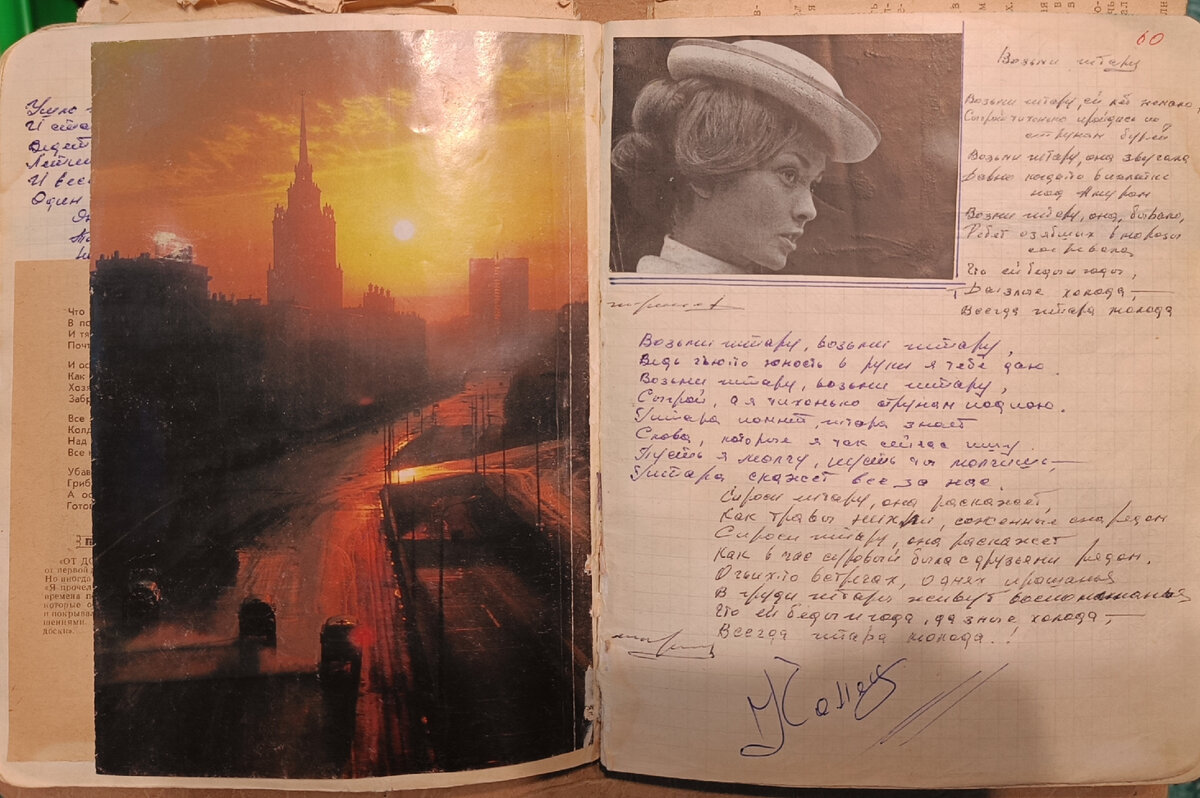 И
Ведет
И вес
Один
Что
В по
И тя
Почт
И ос
Как
Хозя
Забр
Все
Колд
Над
Все
Убав
Гриб
А ос
Гото
"ОТ ДО
от первой д
Но иногда
"Я прочел
времена п
которые о
и покрывал
шениями.
доски".
60
Возьми гитару
Возьми гитару, ей лет немало,
Сыграй тихонько пройдись по
струнам
Возьми гитару, она звучала
Давно когда-то в палатке
над Амуром
Возми гитару, она, бывало,
Ребят озябших в морозы
согревала
Что ей беды и годы,
Да злые холода, —
Всегда гитара молода
припев
Возьми гитару, возьми гитару,
Ведь чью-то юность в руки я тебе даю.
Возьми гитару, возьми гитару,
Сыграй, а я тихонько струнам подпою.
Гитара помнит, гитара знает
Слова, которые я так сейчас ищу.
Пусть я молчу, пусть ты молчишь, —
Гитара скажет все за нас.
Спроси гитару, она раскажет,
Как травы никли, сожженные снарядом
Спроси гитару, она раскажет
Как в час суровый была с друзьями рядом.
О чьих-то встречах, о днях прощанья
В груди гитары живут воспоминанья
Что ей беды и года, да злые холода, —
Всегда гитара молода..!
припев
Конец